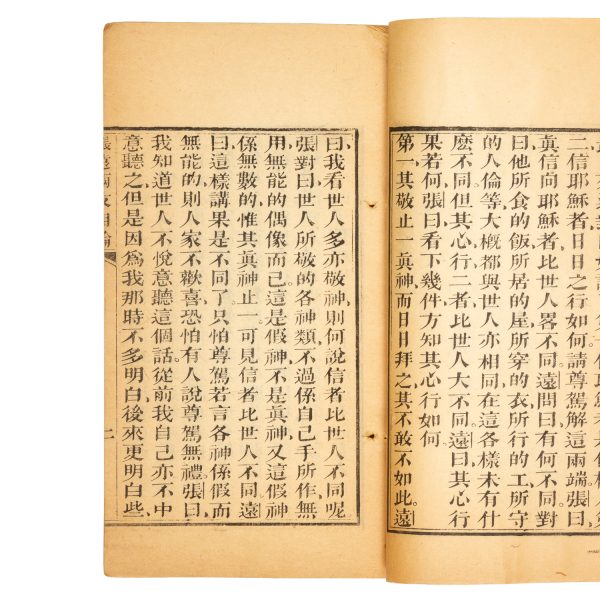 二信耶穌者日日之行如何請尊駕解這兩端張曰
眞信向耶穌者比世人畧不同遠問曰有何不同對
曰他所食的飯所居的屋所穿的衣所行的工所守
的人倫等大槪都與世人亦相同在這各樣未有什
麽不同但其心行二者比世人大不同。遠曰其心行
果若何張曰看下幾件方知其心行如何
第一其敬止一眞神而日日拜之其不敢不如此。遠
曰我看世人多亦敬神則何說信者比世人不同呢
張對曰世人所敬的各神類不過係自己手所作無
用無能的偶像而已。這是假神不是眞神又這假神
係無數的惟其眞神止一可見信者比世人不同。遠
曰這樣講果是不同了只怕尊駕若言各神係假而
無能的則人家不歡喜恐怕有人說尊駕無禮。張曰
我知道世人不悅意聽這個話。從前我自己亦不中
意聽之但是因爲我那時不多明白後來更明白些
二